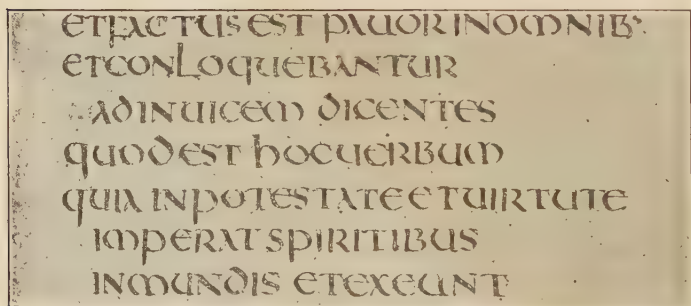 ETFACTUS EST PAUOR INOMNIB·
ETCONLOQUEBANTUR
ADINUICEM DICENTES
QUOD EST HOCUERBUM
QUIA IN POTESTATE ET UIRTUTE
IMPERAT SPIRITIBUS
INMUNDIS ETEXEUNT